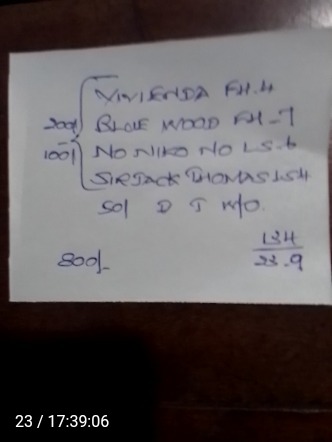 VIVIENDA FH.4
200/ BLUE WOOD FH-7
100/ NO NIKO NO LS-6
SIR JACK THOMAS LS4
50/ D T K/O
134
800/- 23.9
23 / 17:39:06